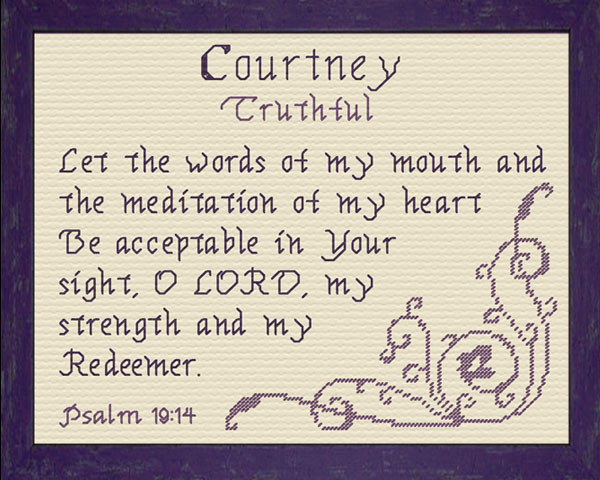 Courtney
Truthful
Let the words of my mouth and
the meditation of my heart
Be acceptable in Your
sight, O LORD, my
strength and my
Redeemer.
Psalm 19:14